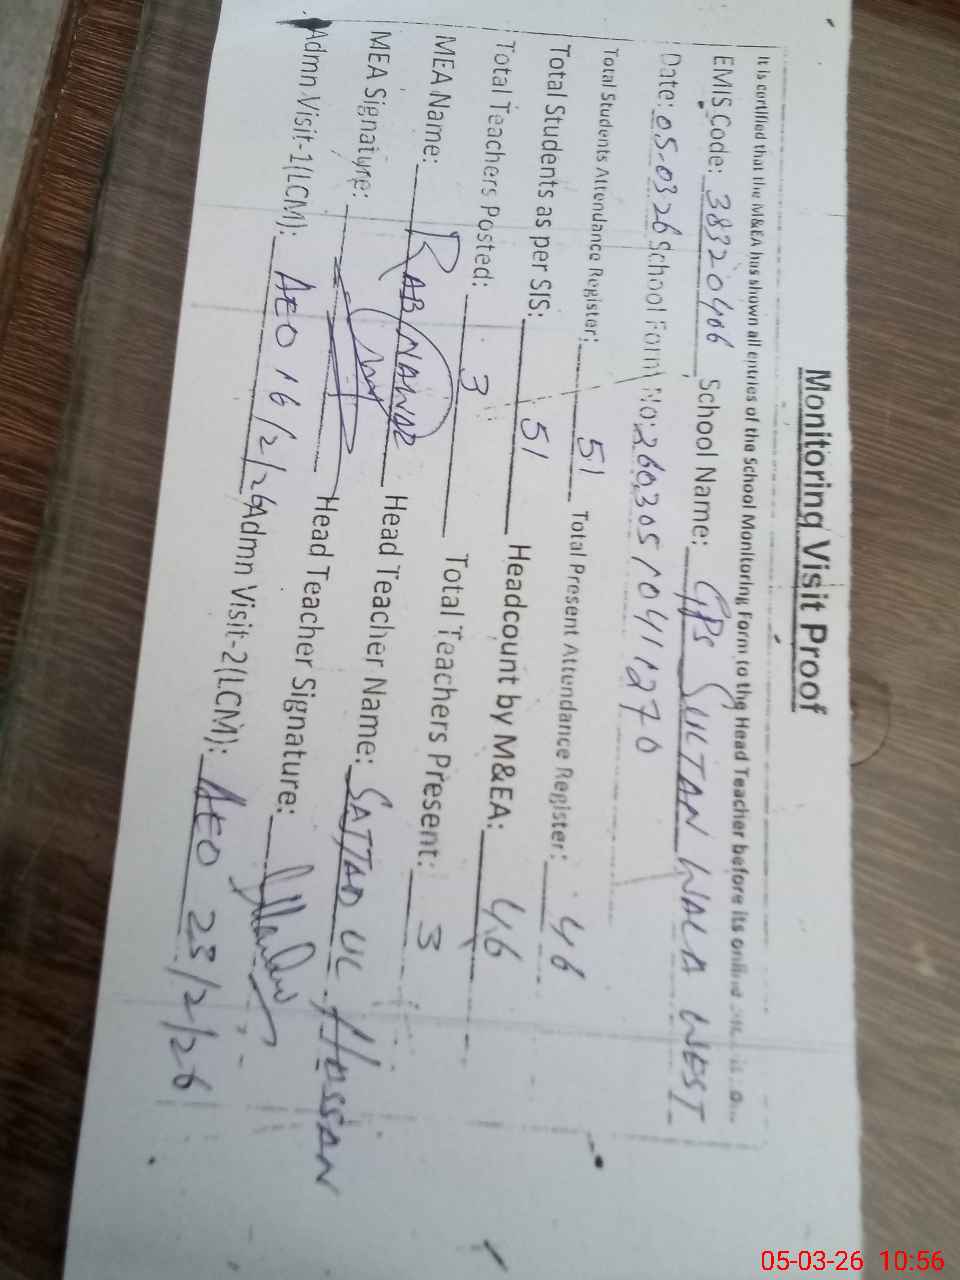 Monitoring Visit Proof
It is certified that the M&EA has shown all entries of the School Monitoring Form to the Head Teacher before its online
EMIS Code: 38320466 School Name: GPS SULTAN WALA WEST
Date: 05-03-26 School Form No: 260305104 1270
Total Students Attendance Register: 51 Total Present Attendance Register: 46
Total Students as per SIS: 51 Headcount by M&EA: 46
Total Teachers Posted: 3 Total Teachers Present: 3
MEA Name: RAB NAWAZ Head Teacher Name: SAJJAD UL HASSAN
MEA Signature: Head Teacher Signature:
Admn Visit-1(LCM): AEO 16/2/26 Admn Visit-2(LCM): AEO 23/2/26
05-03-26 10:56